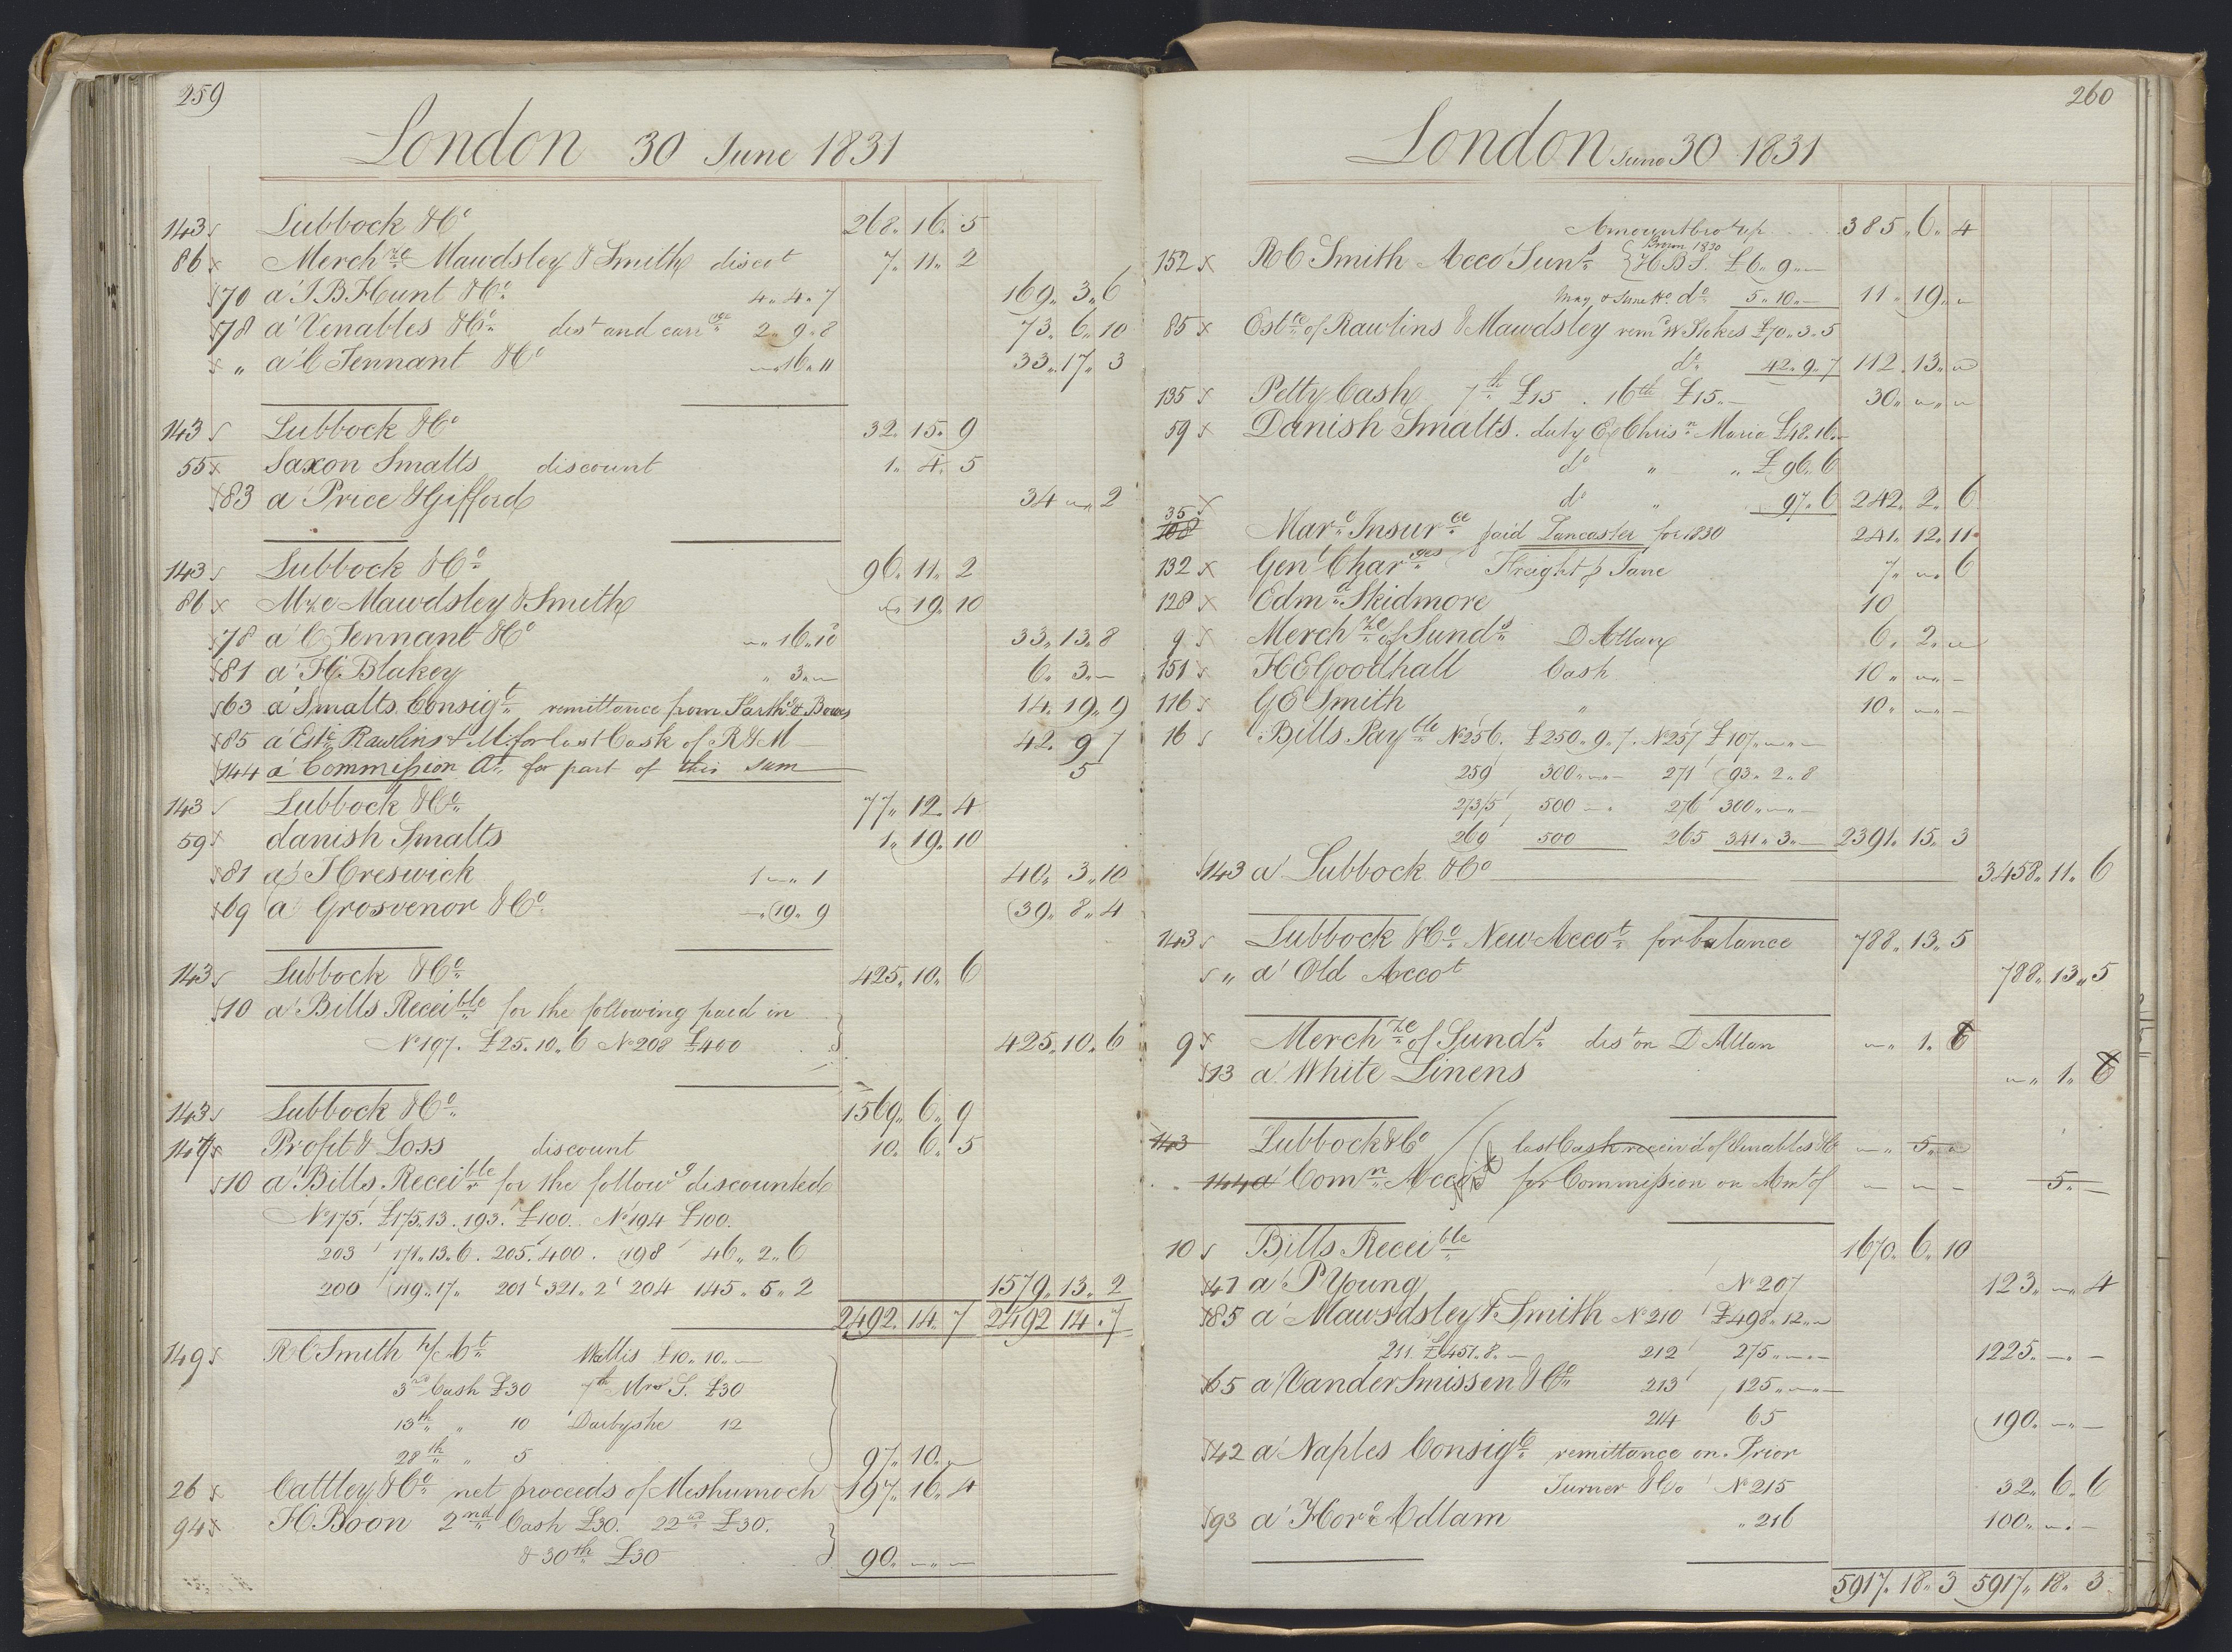 259
London 30 June 1831
143 Lubbock & Co 268. 16. 5
86 x Merchze Mawdsley & Smith discot 7. 11. 2
70 a' J B Hunt & Co 4. 4. 7 169. 3. 6
78 a' Venables & Co dist and carrge 2. 9. 8 73. 6. 10
x " a' C Tennant & Co 16. 11 33. 17. 3
143 Lubbock & Co 32. 15. 9
55 x Saxon Smalts discount 1. 4. 5
83 a' Price & Gifford 34 " 2
143 Lubbock & Co 96. 11. 2
86 x Mze Mawdsley & Smith " 19. 10
78 a' C Tennant & Co " 16. 10 33. 13. 8
81 a' H Blakey " 3. " 6. 3. "
63 a' Smalts Consigt remittance from & 14. 19. 9
85 a' Este Rawlins & M: for last Cask of R & M 42. 9 7
144 a' Commission At for part of this sum 5
143 Lubbock & Co 77. 12. 4
59 x danish Smalts 1. 19. 10
81 a' J Creswick 1 " 1 40. 3. 10
69 a' Grosvenor & Co 19. 9 39. 8. 4
143 Lubbock & Co 425. 10. 6
10 a' Bills Receible for the following paid in
No 197. £25. 10. 6 No 208 £400 425. 10. 6
143 Lubbock & Co 1569. 6. 9
147 x Profit & Loss discount 10. 6. 5
10 a' Bills Receible for the followg discounted
No 175. £175. 13. 193. £100. No 194 £100.
203 171. 13. 6. 205. 400. 198 46. 2. 6
200 119. 17. 201 321. 2 204 145. 5. 2 1579. 13. 2
2492. 14. 7 2492 14. 7
149 x R C Smith h/c Wallis £10. 10. —
3rd Cash £30 7th Mrs S. £30
13th " 10 Darbyshe 12
28th " 5 97. 10. "
26 x Cattley & Co net proceeds of Meshumoch 197. 16. 4
94 x H Boon 2nd Cash £30. 22nd £30.
& 30th £30 90. " "
260
London June 30 1831
Amount brot up 385. 6. 4
152 x R C Smith Acco Sunds { Brown 1830 H B S. £6. 9. —
May & June Ho. do 5. 10. — 11. 19. "
85 x Estte of Rawlins & Mawdsley remd W Stokes £70. 3. 5
do 42. 9. 7 112. 13. "
135 x Petty Cash 7th £15. 16th £15. — 30. " "
59 x Danish Smalts. duty Ex Chrisn Maria £48. 16. —
do " " £96. 6
do " 97. 6 242. 2. 6
35 x
108 Mare Insurce paid Lancaster for 1830 241. 12. 11
132 x Genl Charges Freight p Jane 7. " 6
128 x Edmd Skidmore 10
9 x Merchze of Sunds D Allan 6. 2. "
151 H E Goodhall Cash 10 " " —
116 x G E Smith " 10. " —
16 Bills Payble No 256. £250. 9. 7. No 257 £107. " —
259 300. " — 271 93. 2. 8
273/5 500 — 276 300. " —
269 500 265 341. 3. — 2391. 15. 3
143 a' Lubbock & Co 3458. 11. 6
143 Lubbock & Co New Accot for balance 788. 13. 5
" a' Old Accot 788. 13. 5
9 x Merchze of Sunds dist on D Allan " 1. 6
13 a' White Linens " 1. 6
143 Lubbock & Co last Cash receiv'd of Venables & Co " 5. "
144 a' Comn Accot for Commission on Amt of — — — 5. —
10 Bills Receible 1670. 6. 10
47 a' P Young No 207 123. " 4
85 a' Mawdsley & Smith No 210 £498. 12. "
211. £451. 8. — 212 275. " — 1225. — —
65 a' Vander Smissen & Co 213 125. " —
214 65 190. " —
42 a' Naples Consigt remittance on Prior
Turner & Co No 215 32. 6. 6
93 a' Hore Adlam " 216 100. " —
5917. 18. 3 5917. 18. 3